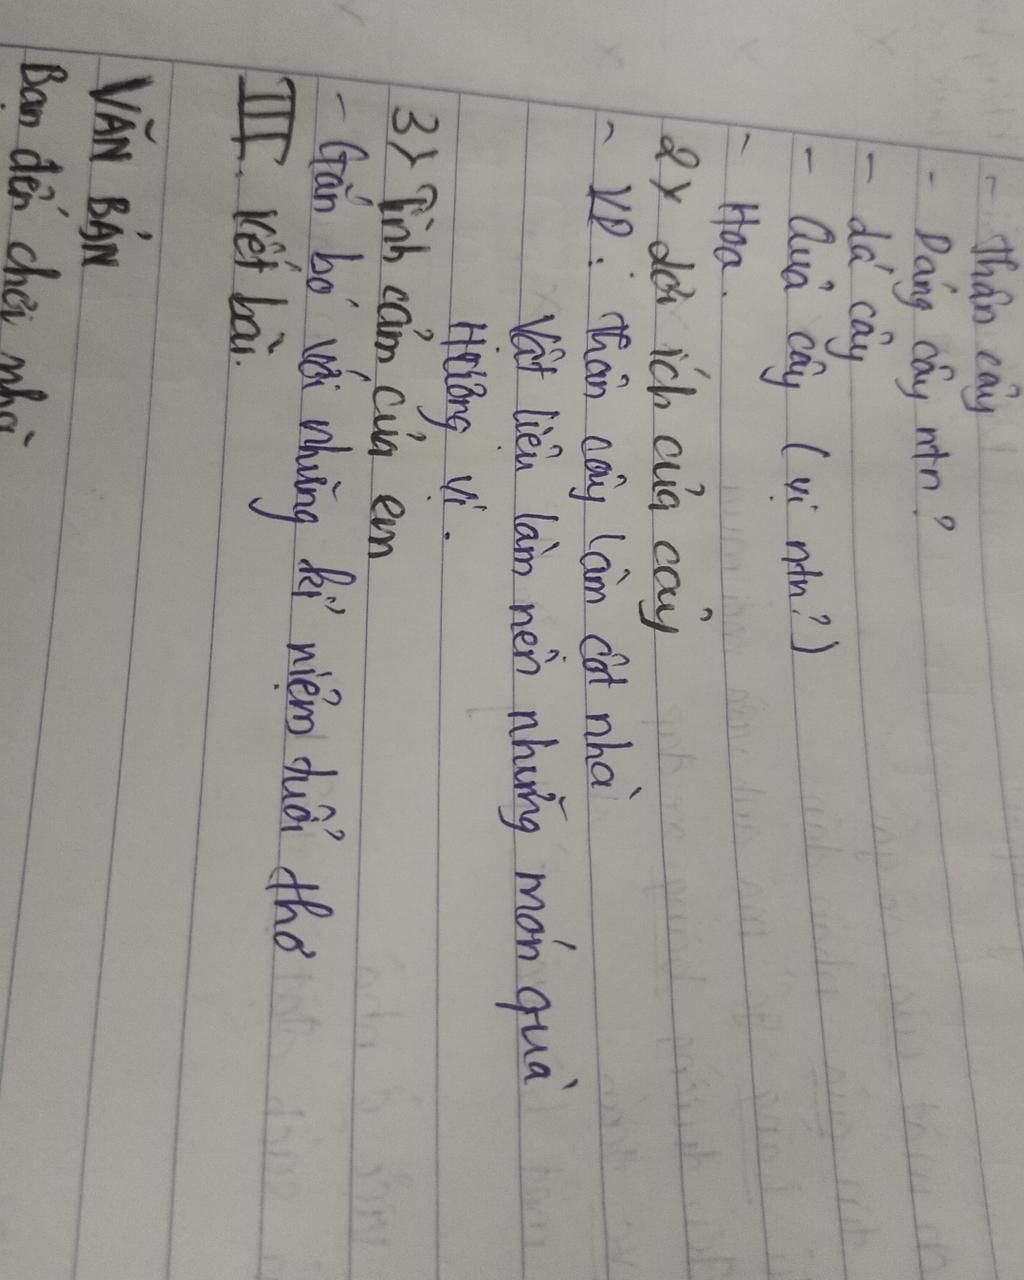 - Thân cây
- Dáng cây ntn?
- Lá cây
- Quả cây (vị ntn?)
- Hoa.
2> Lợi ích của cây
- VD: Thân cây làm cột nhà
Vật liệu làm nên những món quà
Hương vị.
3> Tình cảm của em
- Gắn bó với những kỉ niệm tuổi thơ
III. Kết bài.
VĂN BẢN
Bạn đến chơi nhà